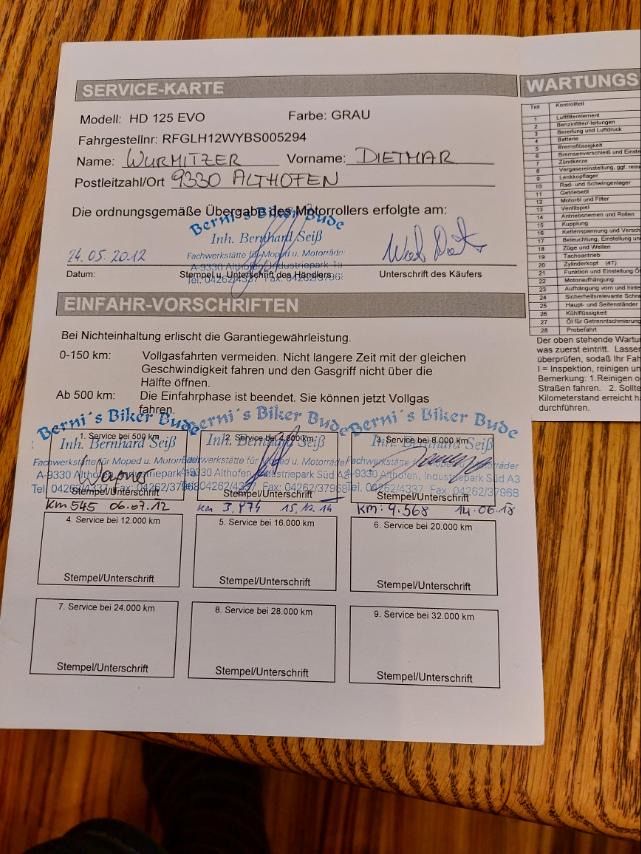 SERVICE-KARTE
Modell: HD 125 EVO Farbe: GRAU
Fahrgestellnr: RFGLH12WYBS005294
Name: WURMITZER Vorname: DIETMAR
Postleitzahl/Ort 9330 ALTHOFEN
Die ordnungsgemäße Übergabe des Motorrollers erfolgte am:
Berni´s Biker Bude
Inh. Bernhard Seiß
24.05.2012
Datum: Stempel u. Unterschrift des Händlers Unterschrift des Käufers
EINFAHR-VORSCHRIFTEN
Bei Nichteinhaltung erlischt die Garantiegewährleistung.
0-150 km: Vollgasfahrten vermeiden. Nicht längere Zeit mit der gleichen
Geschwindigkeit fahren und den Gasgriff nicht über die
Hälfte öffnen.
Ab 500 km: Die Einfahrphase ist beendet. Sie können jetzt Vollgas
fahren.
Berni´s Biker Bude Berni´s Biker Bude Berni´s Biker Bude
1. Service bei 500 km 2. Service bei 4.000 km 3. Service bei 8.000 km
Inh. Bernhard Seiß Inh. Bernhard Seiß Inh. Bernhard Seiß
Stempel/Unterschrift Stempel/Unterschrift Stempel/Unterschrift
km 545 06.07.12 km 3.874 15.12.14 km: 9.568 14.06.18
4. Service bei 12.000 km 5. Service bei 16.000 km 6. Service bei 20.000 km
Stempel/Unterschrift Stempel/Unterschrift Stempel/Unterschrift
7. Service bei 24.000 km 8. Service bei 28.000 km 9. Service bei 32.000 km
Stempel/Unterschrift Stempel/Unterschrift Stempel/Unterschrift
WARTUNGS
Teil Kontrollteil
1 Luftfilterelement
2 Benzinfilter/-leitungen
3 Bereifung und Luftdruck
4 Batterie
5 Bremsflüssigkeit
7 Zündkerze
9 Lenkkopflager
10 Rad- und Schwingenlager
11 Getriebeöl
12 Motoröl und Filter
13 Ventilspiel
14 Antriebsriemen und Rollen
15 Kupplung
16 Kettenspannung und
17 Beleuchtung, Einstellung
18 Züge und Seilzüge
19 Tachoantrieb
20 Zylinderkopf
21 Funktion und Einstellung
22 Motoraufhängung
23 Aufhängung vorn und
24 Sicherheitsrelevante
25 Haupt- und Seitenständer
26 Kühlflüssigkeit
27 Öl für Getrenntschmierung
28 Probefahrt
Der oben stehende
was zuerst eintritt.
überprüfen, sodaß Ihr
I = Inspektion, reinigen
Bemerkung: 1.Reinigen
Straßen fahren. 2. Sollte
Kilometerstand erreicht
durchführen.